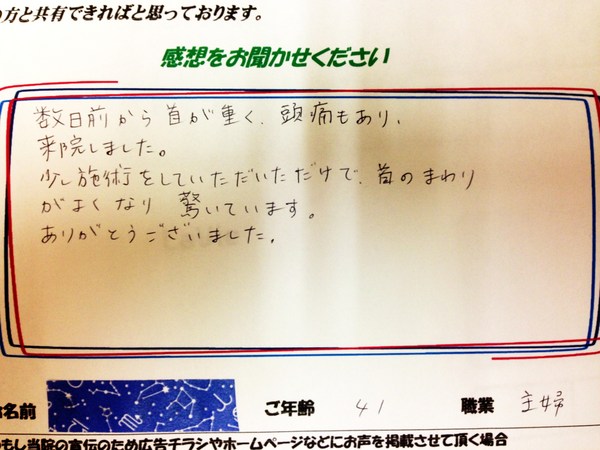 の方と共有できればと思っております。
感想をお聞かせください
数日前から首が重く、頭痛もあり、
来院しました。
少し施術をしていただいただけで、首のまわり
がよくなり 驚いています。
ありがとうございました。
名前
ご年齢 41 職業 主婦
もし当院の宣伝のため広告チラシやホームページなどにお声を掲載させて頂く場合